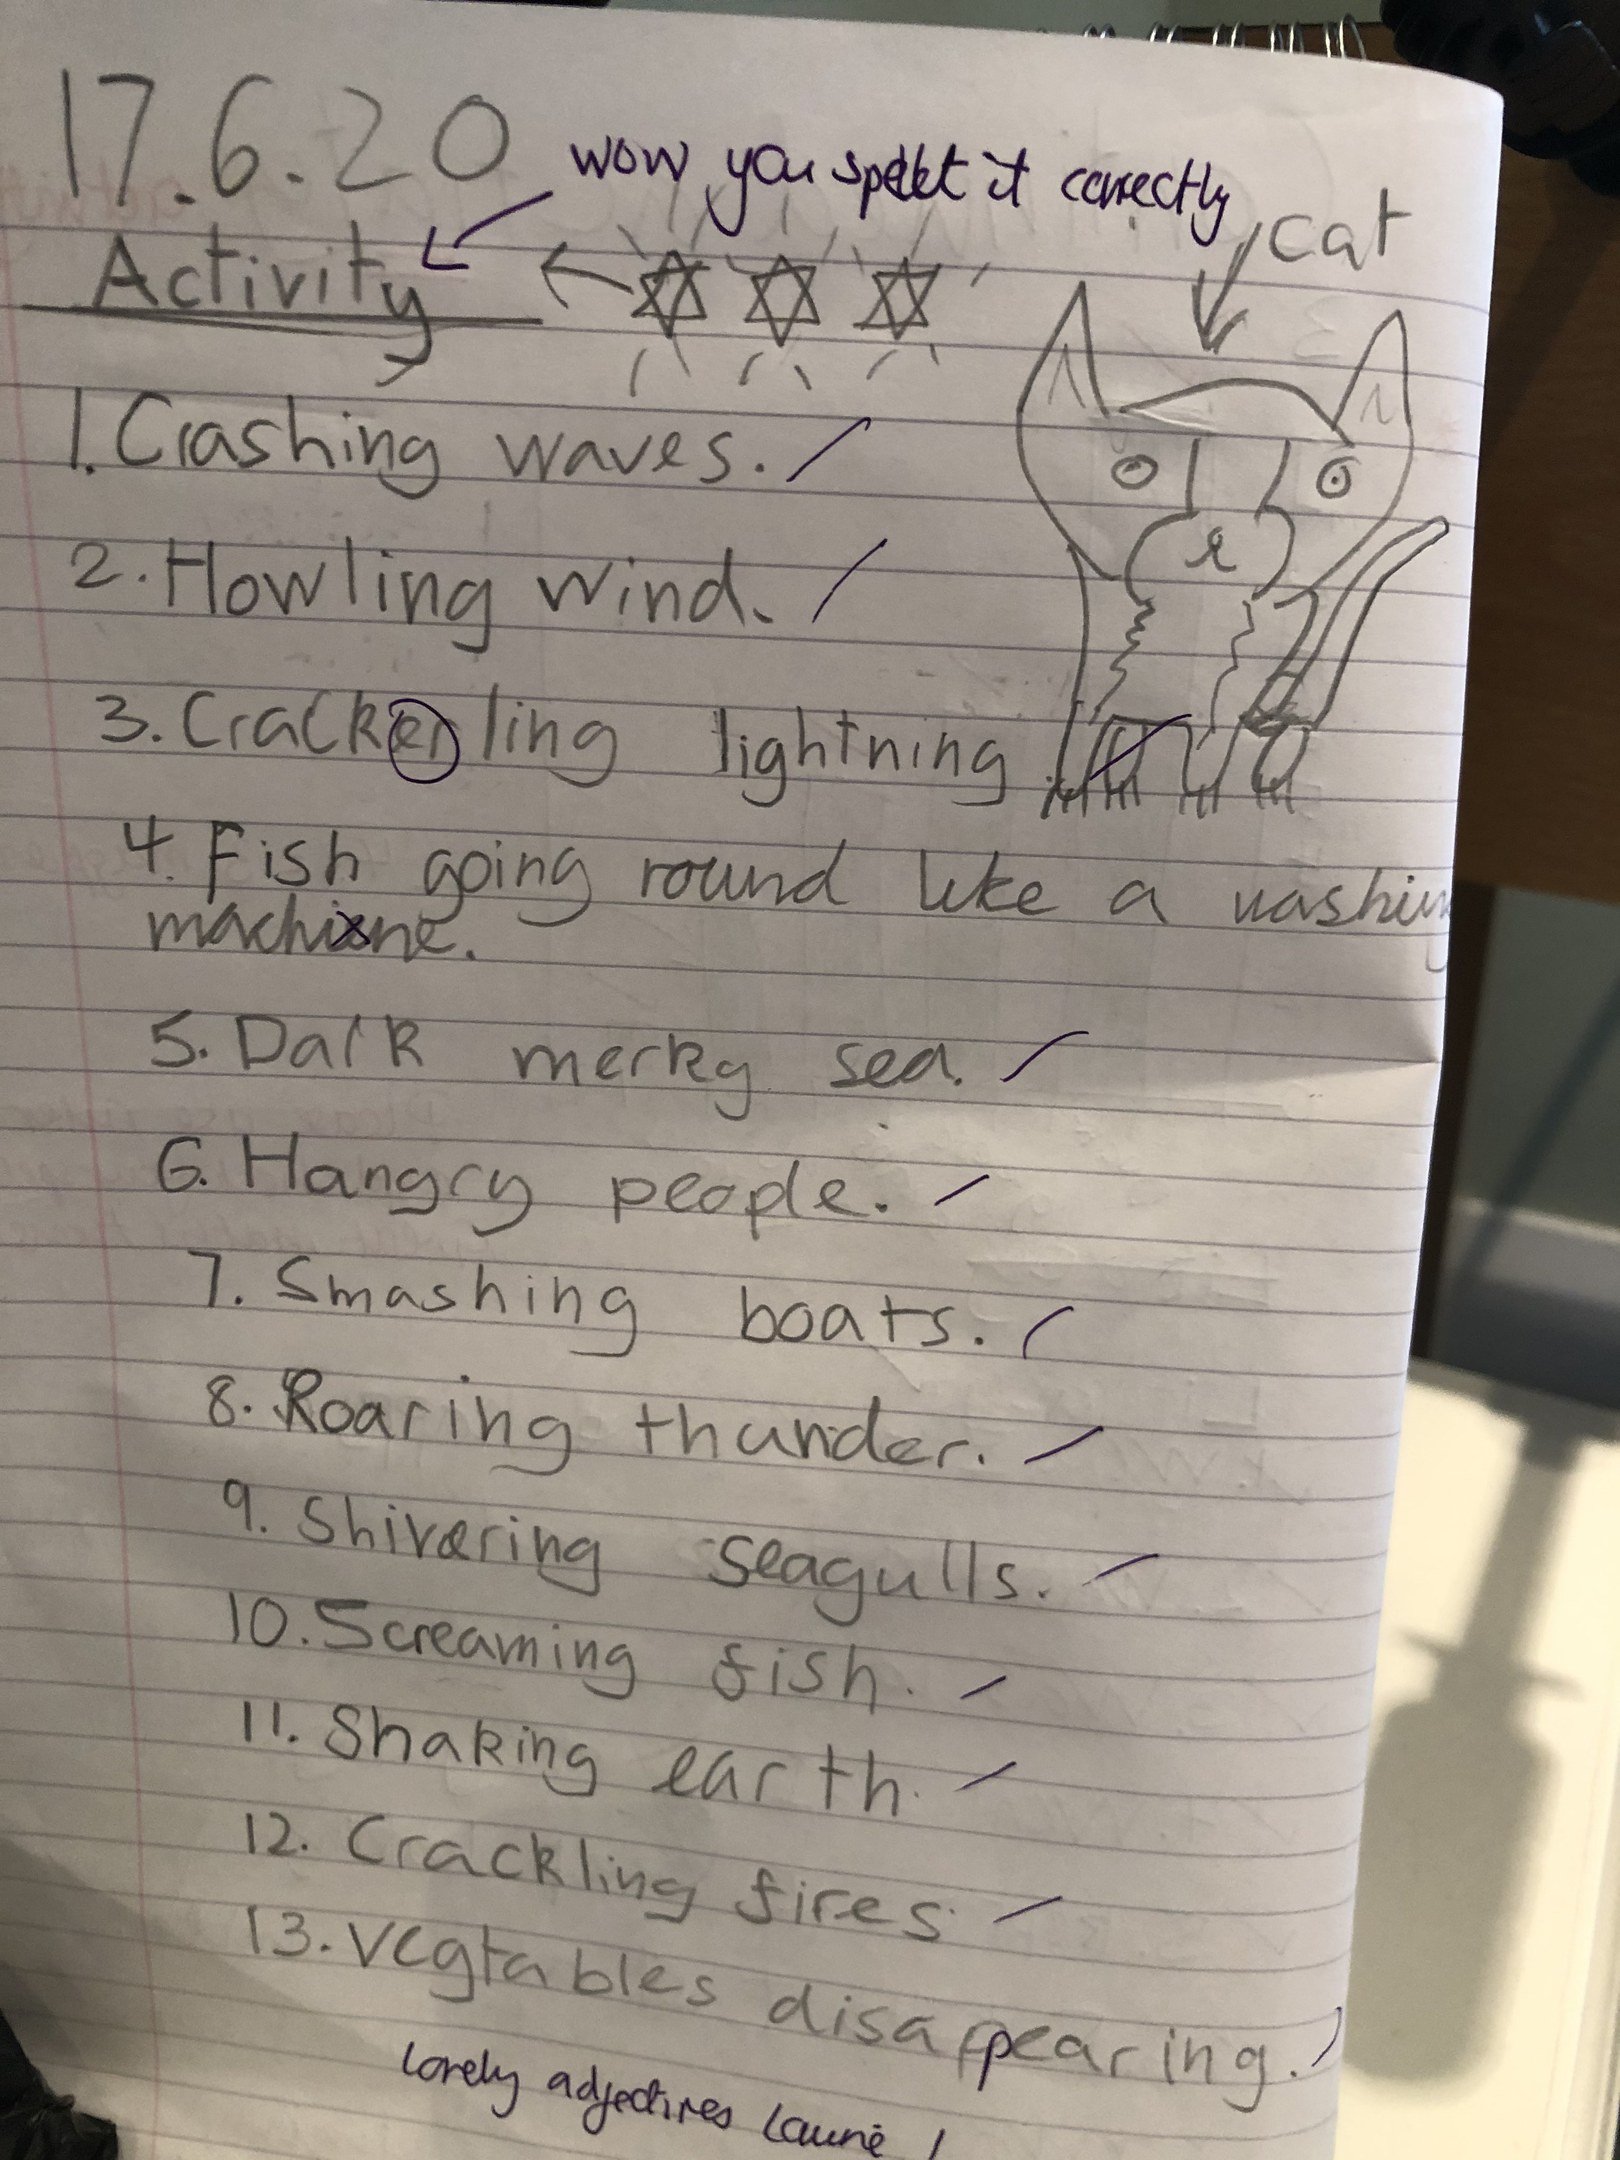 17.6.20
wow you spelt it correctly
cat
Activity
1. Crashing waves.
2. Howling wind.
3. Crackerling lightning.
4. Fish going round like a washing
machine.
5. Dark merky sea.
6. Hangry people.
7. Smashing boats.
8. Roaring thunder.
9. Shivering seagulls.
10. Screaming fish.
11. Shaking earth.
12. Crackling fires.
13. Vegtables disappearing.
Lovely adjectives Laurie!